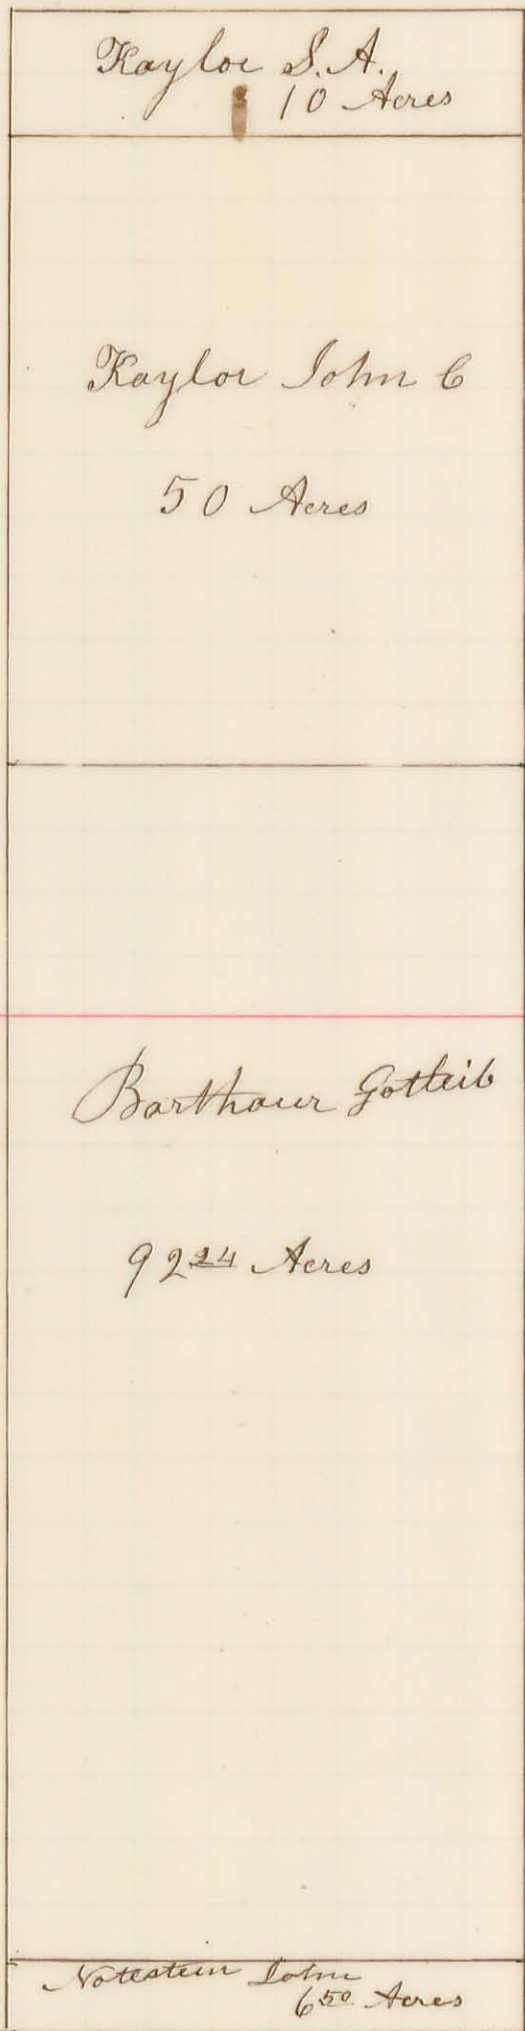 Kaylor S. A.
10 Acres
Kaylor John C
50 Acres
Barthaur Gotleib
92 24 Acres
Notestein John
6 50 Acres